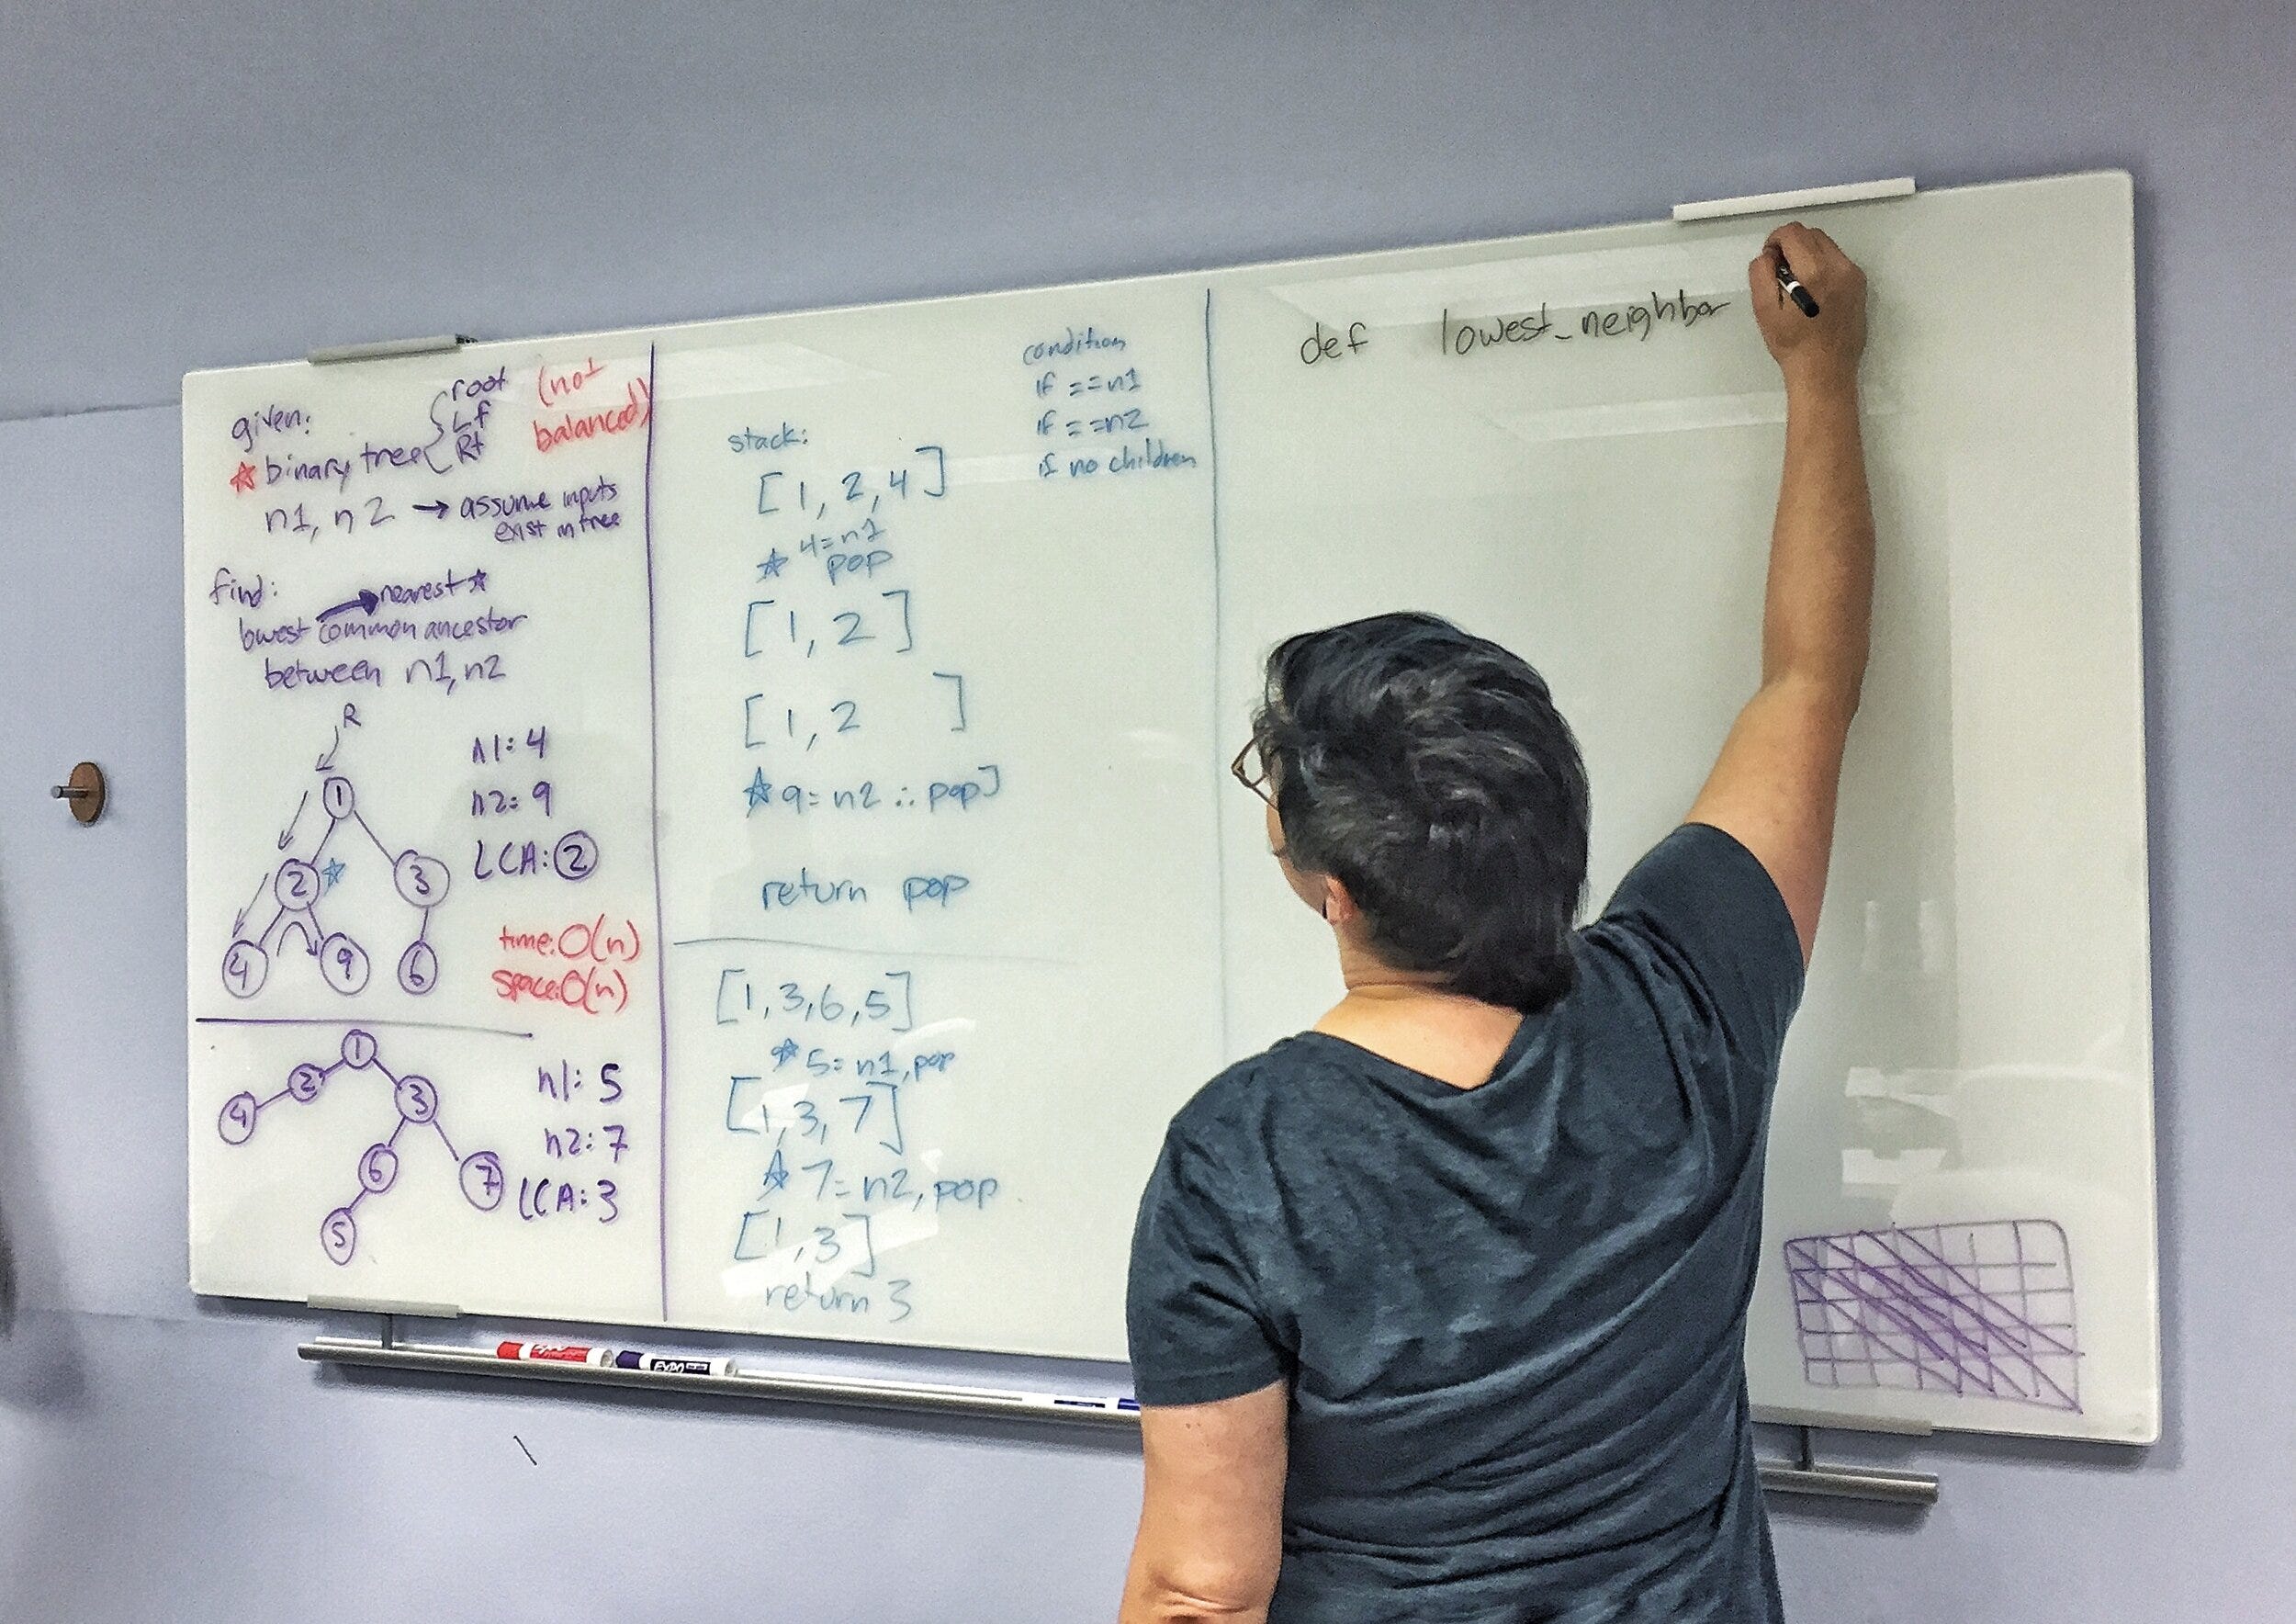 given:
root
Lf
Rt
(not
balanced)
☆ binary tree
n1, n2 → assume inputs
exist in tree
find:
nearest ☆
lowest common ancestor
between n1, n2
R
1
2 ☆
3
4
9
6
n1: 4
n2: 9
LCA: 2
time: O(n)
space: O(n)
1
2
3
4
6
7
5
n1: 5
n2: 7
LCA: 3
condition
if ==n1
if ==n2
if no children
stack:
[1, 2, 4]
4=n1
☆ pop
[1, 2]
[1, 2 ]
☆ 9=n2 ∴ pop]
return pop
[1,3,6,5]
☆ 5=n1, pop
[1,3,7]
☆ 7=n2, pop
[1,3]
return 3
def lowest_neighbor
EXPO